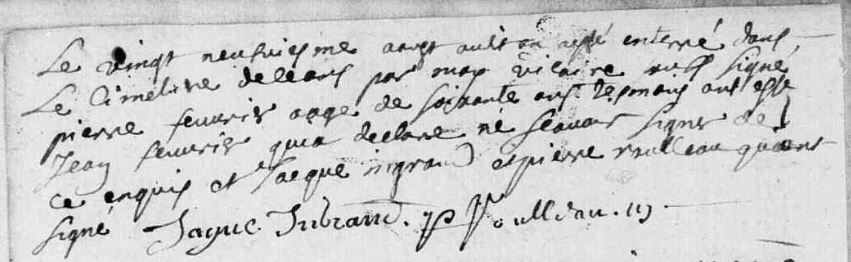 Le vingt neufviesme aoust audit an a esté enterré dans
Le Cimetire de ceans par moy vicaire soubsigné
pierre feuvrier aage de soixante ans tesmoins ont esté
Jean feuvrier qui a declaré né scavoir signer de
ce enquis et Jacque ingrand et pierre roulleau qui ont
signé Jaque Inbrand. P Roulleau.